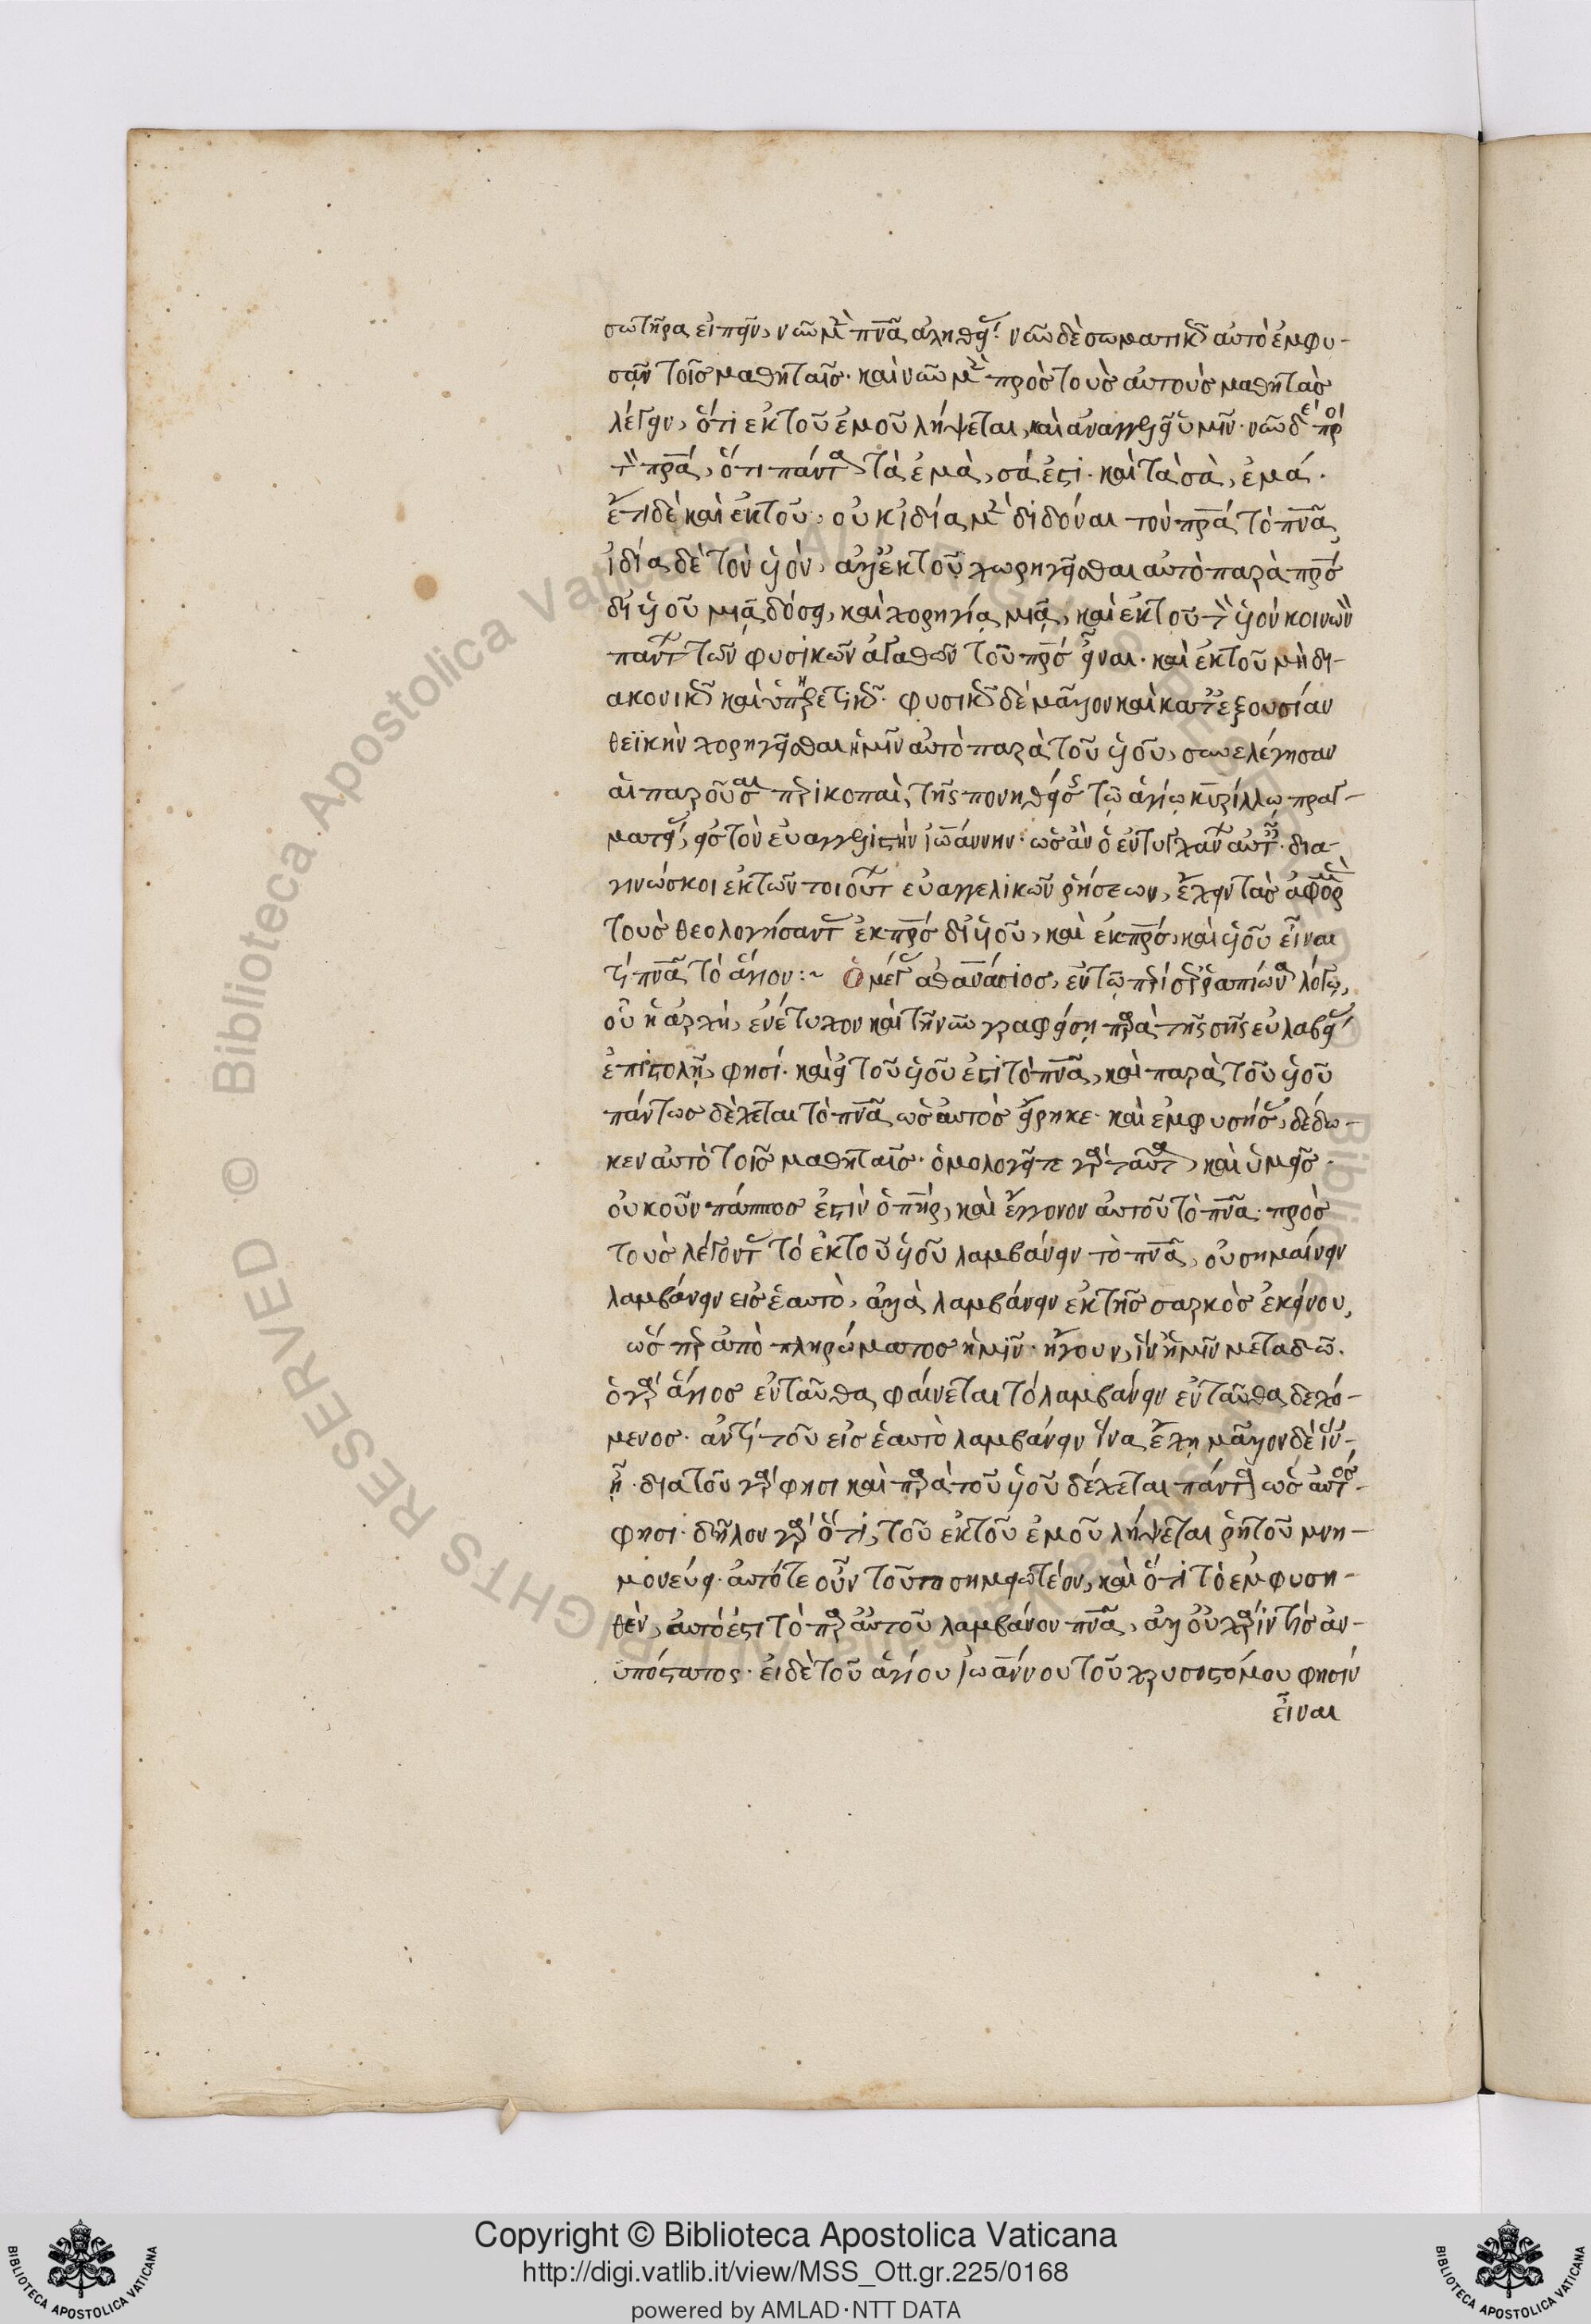 σωτῆρα εἰπεῖν, νῦν μὲν πνᾶ ἀληθείας· νῦν δὲ σωματικῶς αὐτὸ ἐμφυ-
σᾶν τοῖς μαθηταῖς· καὶ νῦν μὲν πρὸς τοὺς αὐτοὺς μαθητὰς
λέγειν, ὅτι ἐκ τοῦ ἐμοῦ λήψεται, καὶ ἀναγγελεῖ ὑμῖν· νῦν δὲ πρὸς
τὸν πρᾶ, ὅτι πάντα τὰ ἐμὰ, σά ἐστι· καὶ τὰ σὰ, ἐμά.
ἔτι δὲ καὶ ἐκ τοῦ, οὐκ ἰδία μὲν διδόναι τὸν πρᾶ τὸ πνᾶ,
ἰδία δὲ τὸν υἱὸν, ἀλλ' ἐκ τοῦ χωρηγεῖσθαι αὐτὸ παρὰ πρός
δι' υἱοῦ μιᾷ δόσει, καὶ χορηγίᾳ μιᾷ, καὶ ἐκ τοῦ τὸν υἱὸν κοινωνὸν
πάντων τῶν φυσικῶν ἀγαθῶν τοῦ πρς εἶναι· καὶ ἐκ τοῦ μὴ δι-
ακονικῶς καὶ ὑπηρετικῶς· φυσικῶς δὲ μᾶλλον καὶ κατ' ἐξουσίαν
θεϊκὴν χορηγεῖσθαι ἡμῖν αὐτὸ παρὰ τοῦ υἱοῦ, συνελέγησαν
αἱ παροῦσαι περικοπαὶ, τῆς πονηθείσης τῷ ἁγίῳ κυρίλλῳ πραγ-
ματείας, εἰς τὸν εὐαγγελιστὴν ἰωάννην· ὡς ἂν ὁ ἐντυγχάνων αὐταῖς· δια-
γινώσκοι ἐκ τῶν τοιούτων εὐαγγελικῶν ῥήσεων, ἔχειν τὰς ἀφορμὰς
τοὺς θεολογήσαντας ἐκ πρς δι' υἱοῦ, καὶ ἐκ πρς, καὶ υἱοῦ εἶναι
τὸ πνᾶ τὸ ἅγιον:~ Ὁ μέγας ἀθανάσιος, ἐν τῷ πρὸς σεραπίωνα λόγῳ,
οὗ ἡ ἀρχὴ, ἐνέτυχον καὶ τῇ νῦν γραφείσῃ παρὰ τῆς σῆς εὐλαβείας
ἐπιστολῇ, φησί· καὶ ἐκ τοῦ υἱοῦ ἐστι τὸ πνᾶ, καὶ παρὰ τοῦ υἱοῦ
πάντως δέχεται τὸ πνᾶ ὡς αὐτὸς εἴρηκε· καὶ ἐμφυσήσας, δέδω-
κεν αὐτὸ τοῖς μαθηταῖς· ὁμολογεῖτε γὰρ ταῦτα, καὶ ὑμεῖς·
οὐκοῦν πάππος ἐστὶν ὁ πήρ, καὶ ἔγγονον αὐτοῦ τὸ πνᾶ· πρὸς
τοὺς λέγοντας τὸ ἐκ τοῦ υἱοῦ λαμβάνειν τὸ πνᾶ, οὐ σημαίνειν
λαμβάνειν εἰς ἑαυτὸ, ἀλλὰ λαμβάνειν ἐκ τῆς σαρκὸς ἐκείνου,
ὥσπερ ἀπὸ πληρώματος ἡμῖν· ἤγουν, ἵν' ἡμῖν μεταδῶ.
ὁ γὰρ ἅγιος ἐνταῦθα φαίνεται τὸ λαμβάνειν ἐνταῦθα δεχό-
μενος· ἀντὶ τοῦ εἰς ἑαυτὸ λαμβάνειν ἵνα ἔχῃ μᾶλλον δὲ ἵν'
ᾖ· διὰ τοῦ γὰρ φησι καὶ παρὰ τοῦ υἱοῦ δέχεται πάντα ὡς αὐτός
φησι· δῆλον γὰρ ὅτι, τοῦ ἐκ τοῦ ἐμοῦ λήψεται ῥητοῦ μνη-
μονεύει· αὐτό τε οὖν τοῦτο σημειωτέον, καὶ ὅτι τὸ ἐμφυση-
θὲν, αὐτό ἐστι τὸ παρ' αὐτοῦ λαμβάνον πνᾶ, ἀλλ' οὐ χάρίν τις ἀν-
υπόστατος· εἰ δὲ τοῦ ἁγίου ἰωάννου τοῦ χρυσοστόμου φησίν
εἶναι
Copyright © Biblioteca Apostolica Vaticana
http://digi.vatlib.it/view/MSS_Ott.gr.225/0168
powered by AMLAD·NTT DATA
Biblioteca Apostolica Vaticana ALL RIGHTS RESERVED ©
BIBLIOTECA APOSTOLICA VATICANA
BIBLIOTECA APOSTOLICA VATICANA